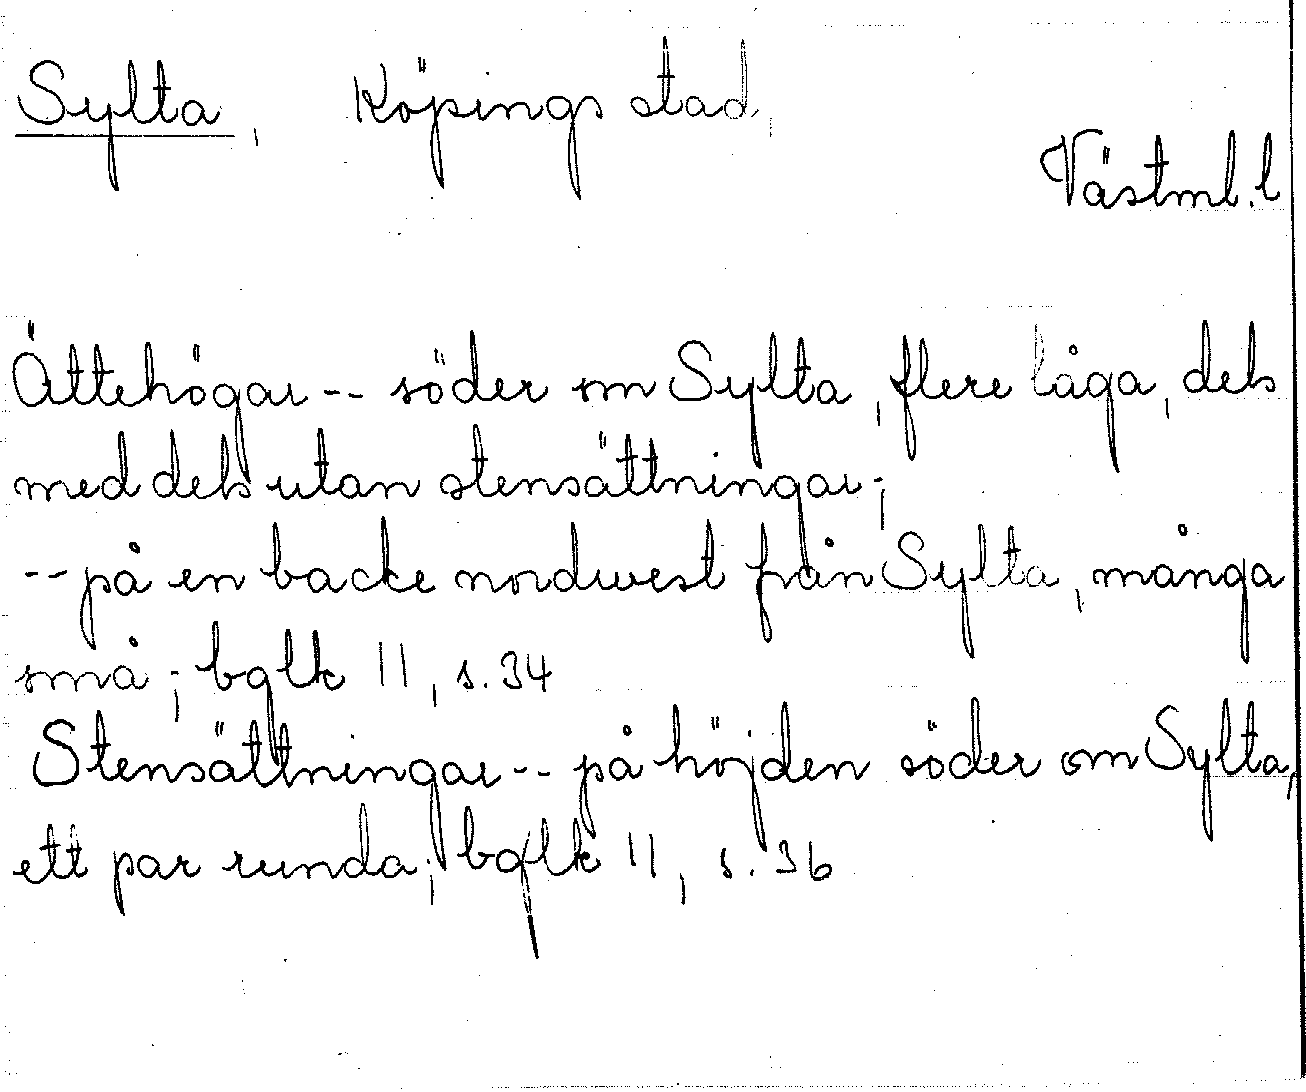 Sylta, Köpings stad,
Västml. l
Ättehögar -- söder om Sylta, flere låga, dels
med dels utan stensättningar;
-- på en backe nordwest från Sylta, många
små; bglk 11, s. 34
Stensättningar -- på höjden söder om Sylta,
ett par runda; bglk 11, s. 36